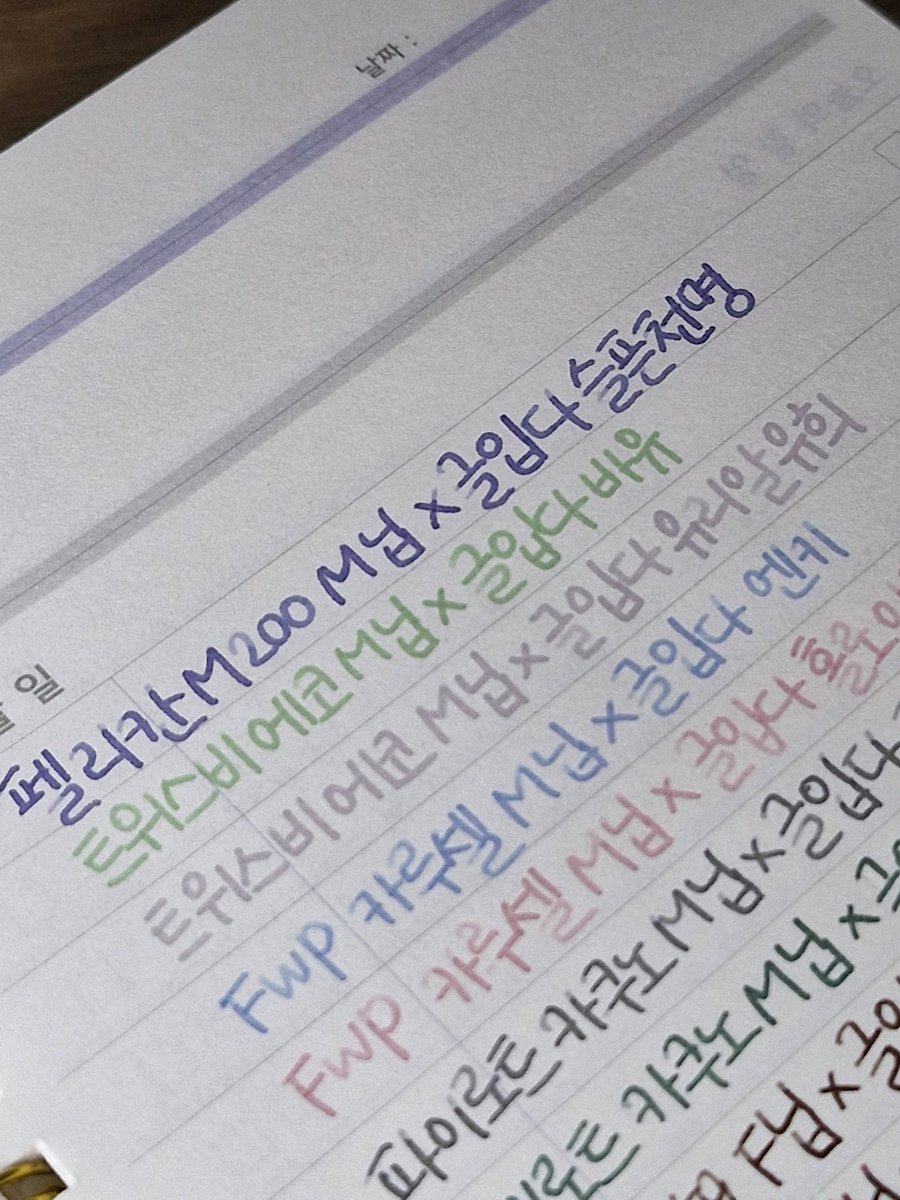 날짜 :
일
펠리칸 M200 M닙 x 글입다 슬픈천명
트위스비 에코 M닙 x 글입다 바유
트위스비 에코 M닙 x 글입다 유리알유희
Fwp 카루셀 M닙 x 글입다 엔키
Fwp 카루셀 M닙 x 글입다
파이로트 캬쿠노 M닙 x 글입다
캬쿠노 M닙 x
F닙 x